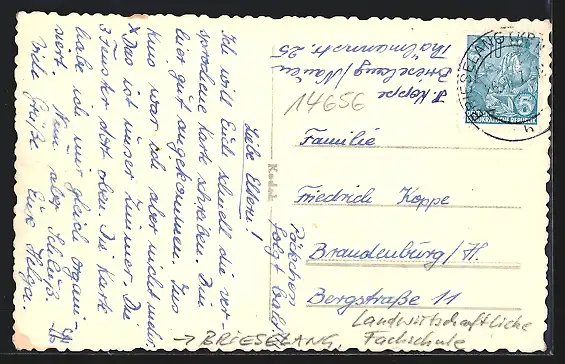 Liebe Eltern!
Ich will Euch schnell die ver
sprochene Karte schreiben. Bin
hier gut angekommen. Ins
Kino war ich aber nicht mehr.
x Das ist unser Zimmer. Die
3 Fenster dort oben. Die Karte
habe ich mir gleich organi-
siert. Nun aber Schluß.
Viele Grüße Eure Helga.
Päckchen
folgt bald
Kodak
H. Koppe
Brieselang/Nauen
Thälmannstr. 25
14656
BRIESELANG
6
DEUTSCHE DEMOKRATISCHE REPUBLIK
Familie
Friedrich Koppe
Brandenburg/H.
Bergstraße 11
→ BRIESELANG,
Landwirtschaftliche
Fachschule